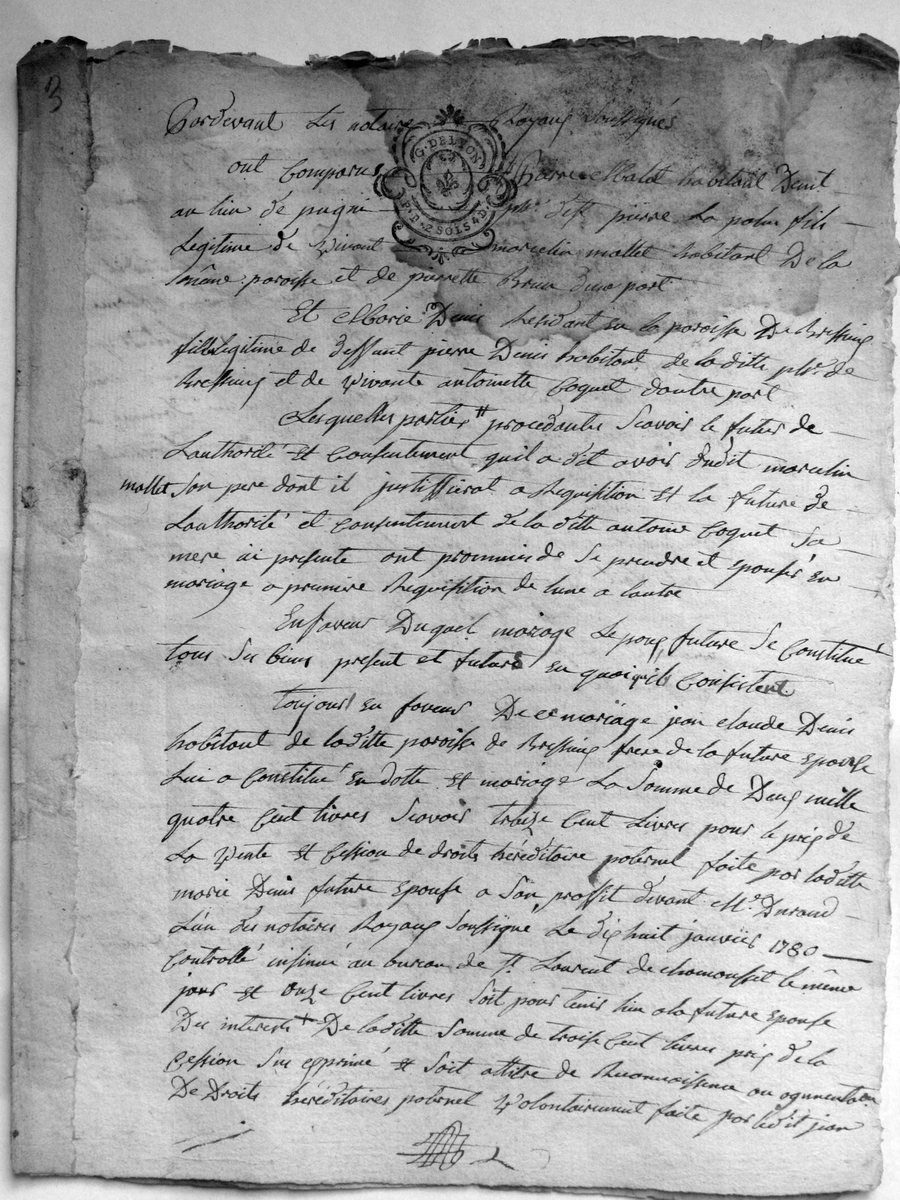 3
Pardevant Les notaires Royaux Soussignés
G. DE LYON
P.P.D. 2 SOLS 4 D.
ont Comparus Pierre Malet habitant Dud.t
au lieu de pugni ph.e de st pierre La palus fils
Legitime de vivant marcelin mallet habitant De la
même paroisse et de pierrette Brun dune part
Et Marie Denis Residant su la paroisse De Bressing
fille Legitime de deffunt pierre Denis habitant de laditte ph.e de
Bressing et de vivante antoinette Coquet dautre part
Lesquelles parties procedantes Scavoir le futur de
Lauthorité et Consentement quil a dit avoir dudit marcelin
mallet Son pere dont il justiffierat a Requisition et la future de
Lauthorité et Consentement de laditte antoine Coquet Sa
mere ici presente ont prommis de Se prendre et epouser En
mariage a premire Requisition de lune a lautre
En faveur Duquel mariage Lepoux future Se Constitué
tous Ses biens present et future en quoi quils Consistent
toujours En faveur De ce mariage jean claude Denis
habitant de laditte paroisse de Bressing frere de la future Epouse
Lui a Constitué En dotte et mariage La Somme de Deux mille
quatre Cent livres Scavoir traize Cent Livres pour le prix de
La Vente et Cession de droits héréditaire paternel faite par laditte
marie Denis future epouse a Son proffit devant M.e Durand
L'un des notaires Royaux Soussigné Le dix huit janvier 1780
Controllé insinué au bureau de St Laurent de chamousset le même
jour et onze Cent livres Soit pour tenir lieu a la future epouse
Des interets De laditte Somme de traise Cent livres prix de la
Cession Sus exprimé et Soit attitre de Reconnaissance ou ogmentation
De Droits héréditaires paternel volontairement faite par ledit jean